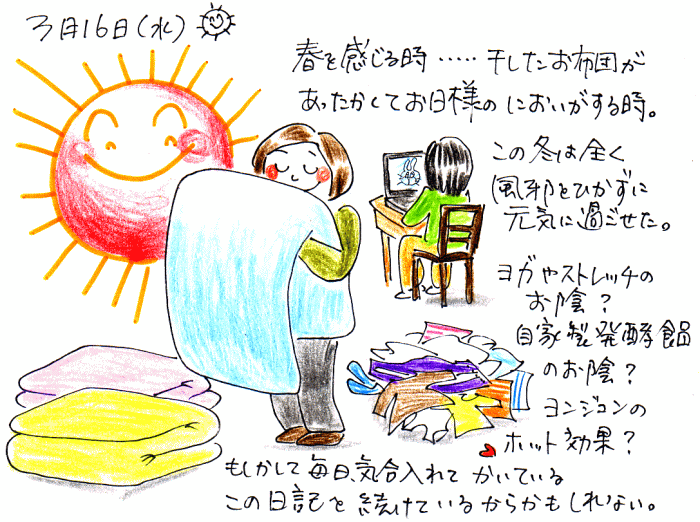 3月16日(水)
春を感じる時……干したお布団が
あったかくてお日様のにおいがする時。
この冬は全く
風邪をひかずに
元気に過ごせた。
ヨガやストレッチの
お陰?
自家製発酵食品
のお陰?
ヨンジュンの
ホット効果?
もしかして毎日、気合入れてかいている
この日記を続けているからかもしれない。